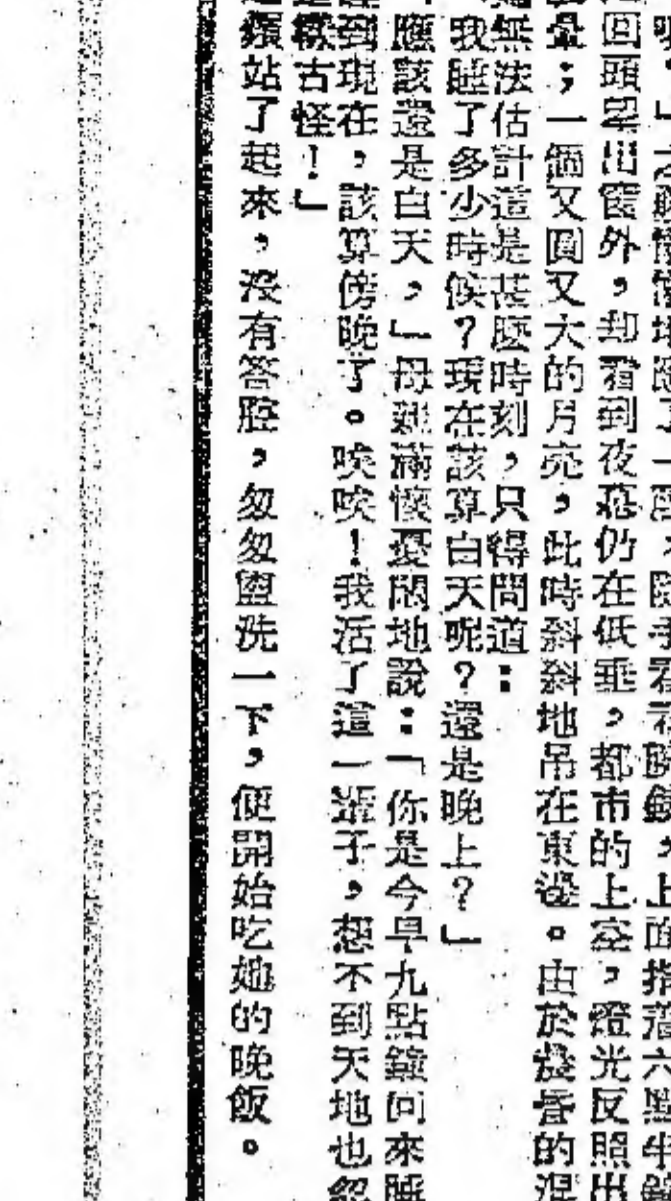 了一，隨手看看腕錶，上面指着六點半鐘
回頭望出窗外，却看到夜幕仍在低垂，都市的上空，燈光反照出
暈；一個又圓又大的月亮，此時斜斜地吊在東邊。由於晨昏的混
無法估計這是甚麼時刻，只得問道：
我睡了多少時候？現在該算白天呢？還是晚上？」
應該還是白天，」母親滿懷憂悶地說：「你是今早九點鐘回來睡
到現在，該算傍晚了。唉唉！我活了這一輩子，想不到天地也忽
古怪！」
站了起來，沒有答腔，匆匆盥洗一下，便開始吃她的晚飯。